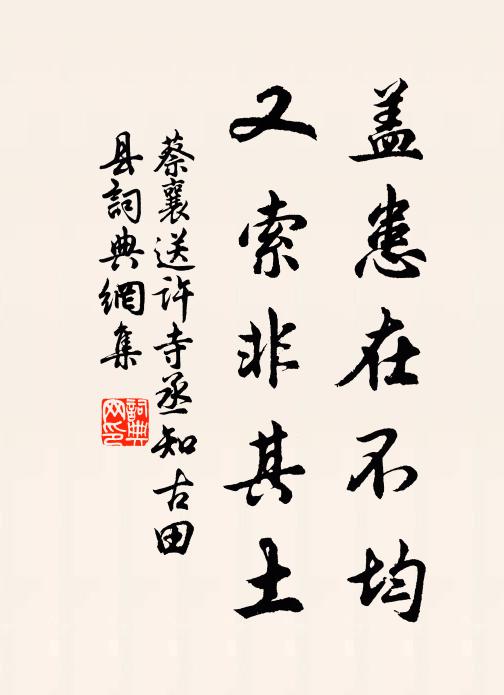 盖患在不均
又索非其土
蔡襄送許寺丞知古田
县詞典網集
詞典网印